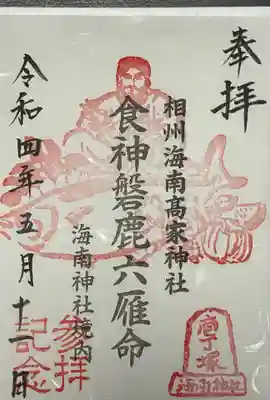 奉拝
相州海南高家神社
食神磐鹿六雁命
海南神社境内
令和四年五月十二日
参拝
記念
庖丁塚
海南神社